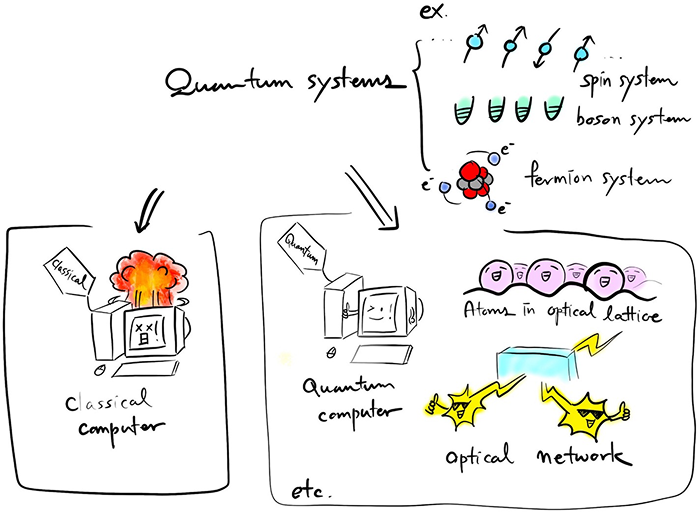 ex.
Quantum systems
spin system
boson system
e⁻
e⁻
e⁻
fermion system
Classical
xx!
Classical
computer
Quantum
>.!
Quantum
computer
Atoms in optical lattice
optical network
etc.